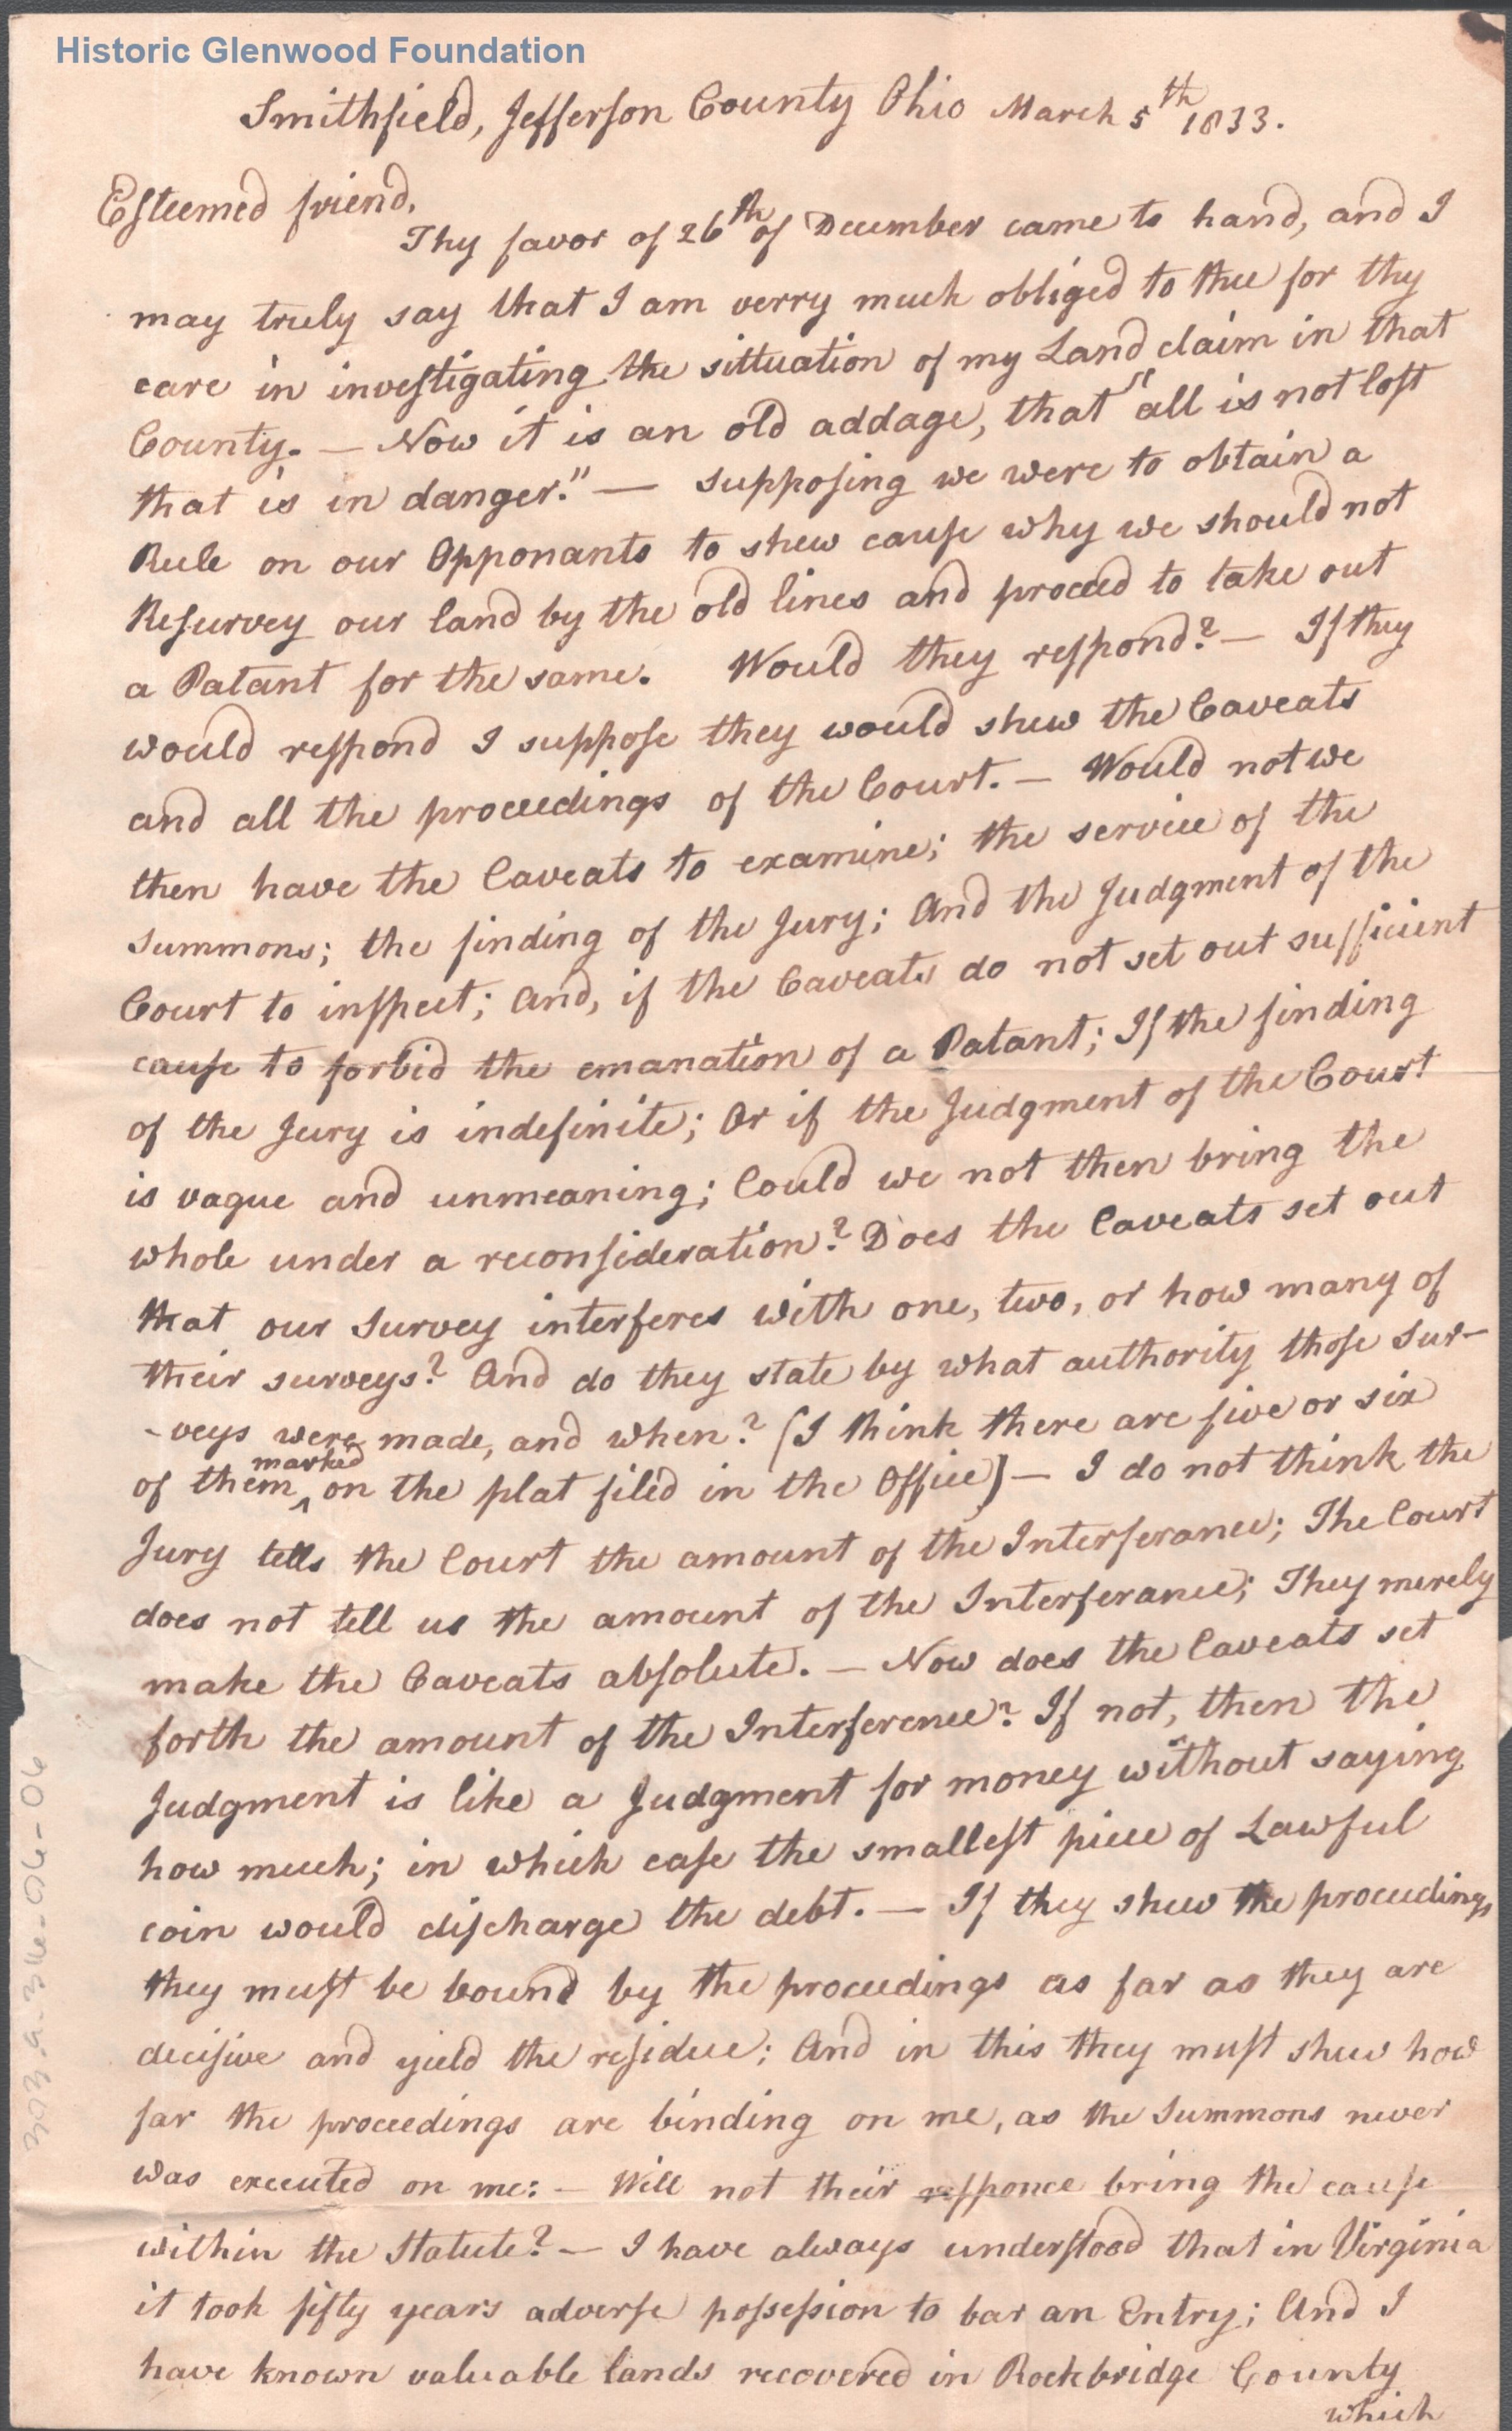 Historic Glenwood Foundation
Smithfield, Jefferson County Ohio March 5th 1833.
Esteemed friend,
Thy favor of 26th of December came to hand, and I
may truly say that I am verry much obliged to thee for thy
care in investigating the sittuation of my Land claim in that
County. — Now it is an old addage, that "all is not lost
that is in danger." — Supposing we were to obtain a
Rule on our Opponants to shew cause why we should not
Resurvey our land by the old lines and proceed to take out
a Patant for the same. Would they respond? — If they
would respond I suppose they would shew the Caveats
and all the proceedings of the Court. — Would not we
then have the Caveats to examine; the service of the
Summons; the finding of the Jury; And the Judgment of the
Court to inspect; And, if the Caveats do not set out sufficient
cause to forbid the emanation of a Patant; If the finding
of the Jury is indefinite; Or if the Judgment of the Court
is vague and unmeaning; Could we not then bring the
whole under a reconsideration? Does the Caveats set out
that our Survey interferes with one, two, or how many of
their surveys? And do they state by what authority those Sur-
-veys were made, and when? (I think there are five or six
marked
of them ^ on the plat filed in the Office) — I do not think the
Jury tells the Court the amount of the Interferance; The Court
does not tell us the amount of the Interferance; They merely
make the Caveats absolute. — Now does the Caveats set
forth the amount of the Interference? If not, then the
Judgment is like a Judgment for money without saying
how much; in which case the smallest piece of Lawful
coin would discharge the debt. — If they shew the proceedings
they must be bound by the proceedings as far as they are
decisive and yield the residue; And in this they must shew how
far the proceedings are binding on me, as the Summons never
was executed on me: — Will not their responce bring the cause
within the Statute? — I have always understood that in Virginia
it took fifty years adverse possession to bar an Entry; And I
have known valuable lands recovered in Rockbridge County
which